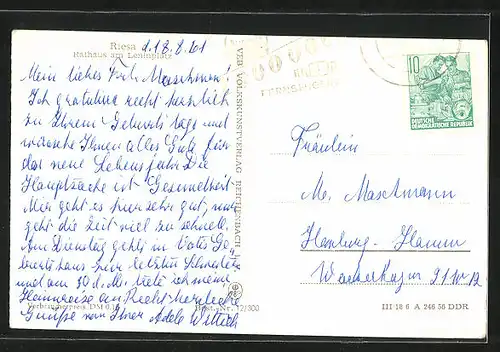 Riesa d. 18.8.61
Rathaus am Leninplatz
Mein liebes Frl. Maschmann!
Ich gratuliere recht herzlich
zu Ihrem Geburtstage und
wünsche Ihnen alles Gute für
das neue Lebensjahr. Die
Hauptsache ist Gesundheit
Mir geht es hier sehr gut, nur
geht die Zeit viel zu schnell.
Am Dienstag geht's in Vaters Ge-
burtshaus zur letzten Schwester
und am 30. d. M.
Heimreise an. Recht herzliche
Grüße von Ihrer Adele Wittich
Verbraucherpreis DM 0,10
Best.-Nr. 12/300
VEB VOLKSKUNSTVERLAG REICHENBACH I. V.
10
DEUTSCHE
DEMOKRATISCHE REPUBLIK
Fräulein
M. Maschmann
Hamburg-Hamm
III 18 6 A 246 56 DDR